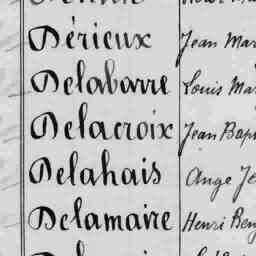 Dérieux Jean Mar
Delabarre Louis Mar
Delacroix Jean Bap
Delahais Ange Je
Delamaire Henri Ben